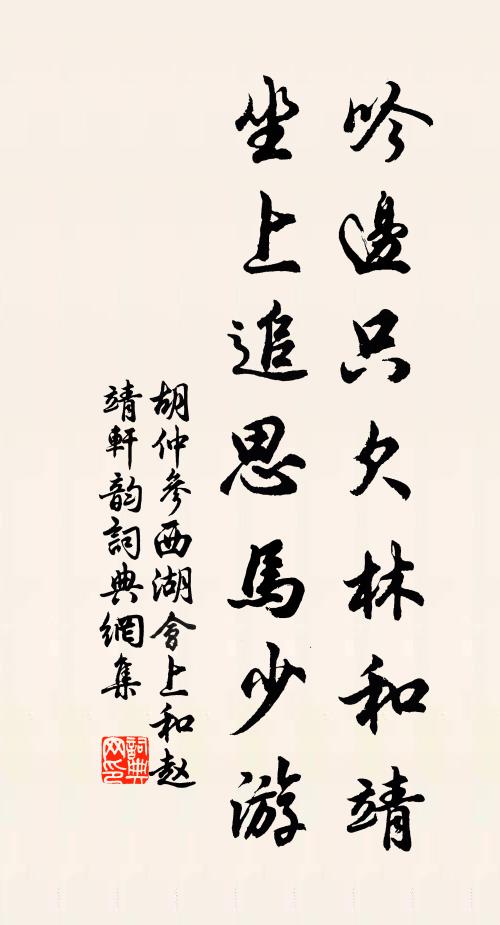 吟邊只欠林和靖
坐上追思馬少游
胡仲參西湖會上和赵
靖軒韵詞典網集
詞典
网印